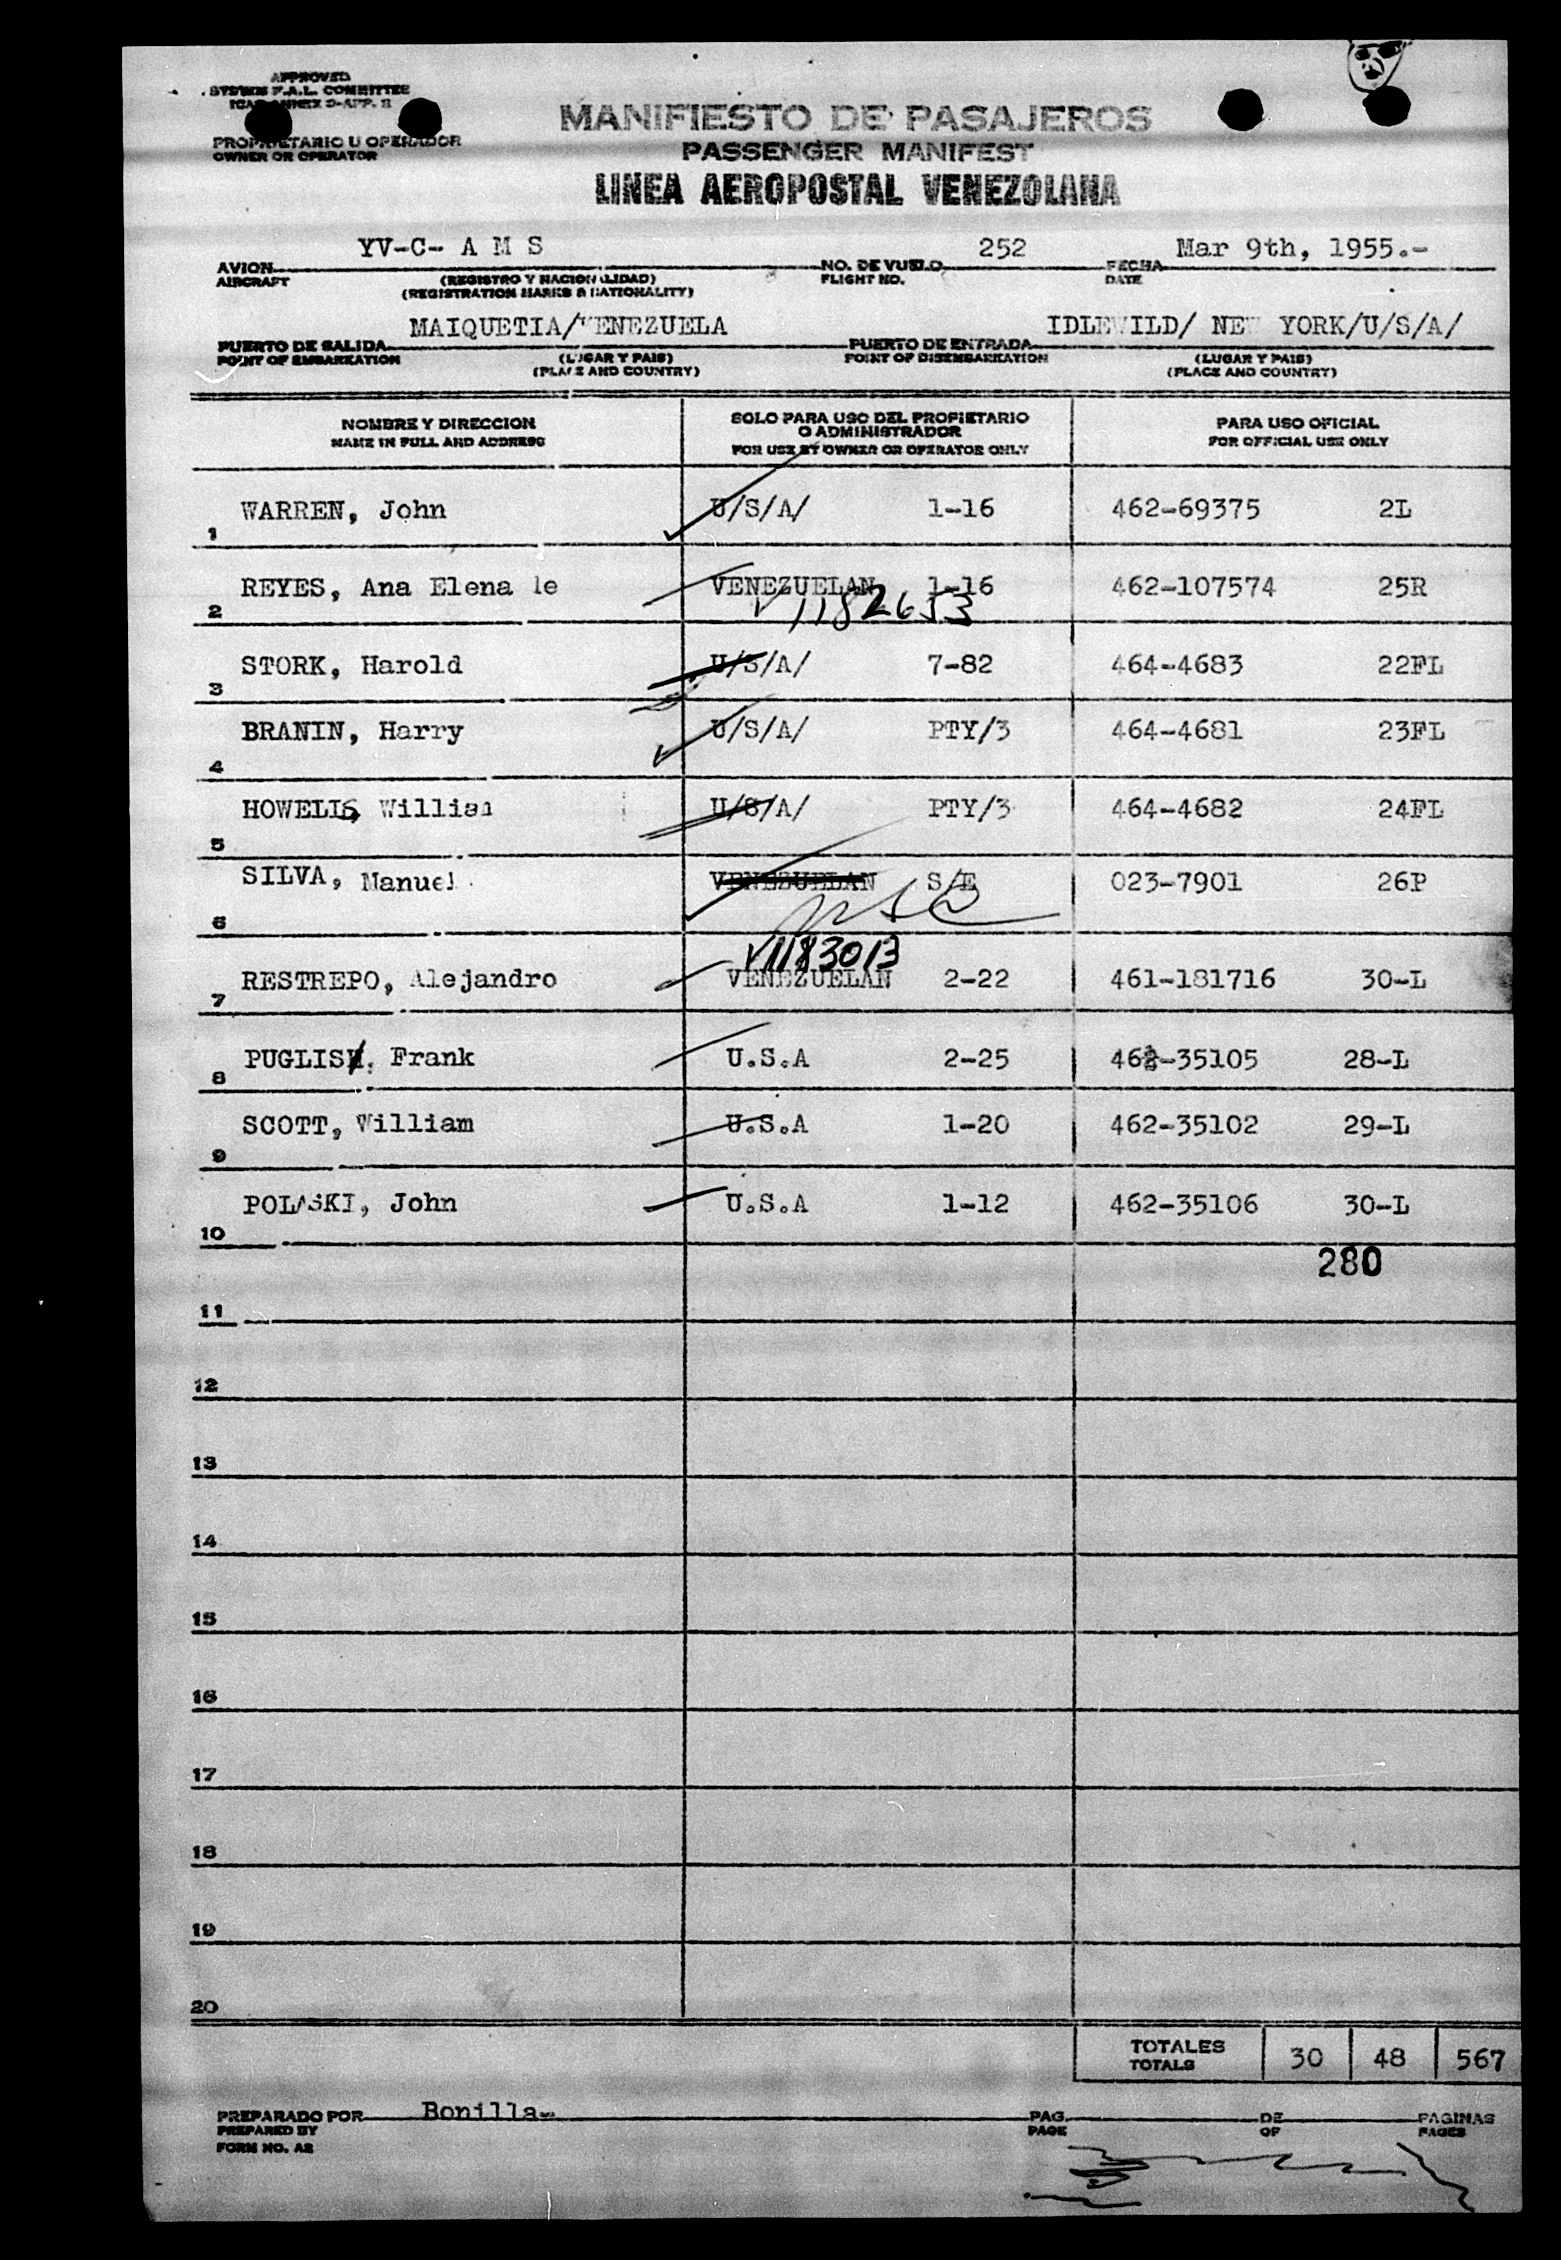 APPROVED
SYSTEM F.A.L. COMMITTEE
ICAO ANNEX 9-APP. 
PROPIETARIO U OPERADOR
OWNER OR OPERATOR
MANIFIESTO DE PASAJEROS
PASSENGER MANIFEST
LINEA AEROPOSTAL VENEZOLANA
YV-C- A M S 252 Mar 9th, 1955.-
AVION NO. DE VUELO FECHA
AIRCRAFT (REGISTRO Y NACIONALIDAD) FLIGHT NO. DATE
(REGISTRATION MARKS & NATIONALITY)
MAIQUETIA/VENEZUELA IDLEWILD/ NEW YORK/U/S/A/
PUERTO DE SALIDA PUERTO DE ENTRADA
POINT OF EMBARKATION (LUGAR Y PAIS) POINT OF DISEMBARKATION (LUGAR Y PAIS)
(PLACE AND COUNTRY) (PLACE AND COUNTRY)
NOMBRE Y DIRECCION SOLO PARA USO DEL PROPIETARIO PARA USO OFICIAL
NAME IN FULL AND ADDRESS O ADMINISTRADOR FOR OFFICIAL USE ONLY
FOR USE BY OWNER OR OPERATOR ONLY
1 WARREN, John U/S/A/ 1-16 462-69375 2L
2 REYES, Ana Elena de VENEZUELAN 1-16 462-107574 25R
V1182653
3 STORK, Harold U/S/A/ 7-82 464-4683 22FL
4 BRANIN, Harry U/S/A/ PTY/3 464-4681 23FL
5 HOWELLS, William U/S/A/ PTY/3 464-4682 24FL
6 SILVA, Manuel VENEZUELAN S/E 023-7901 26P
USC
V1183013
7 RESTREPO, Alejandro VENEZUELAN 2-22 461-181716 30-L
8 PUGLISI, Frank U.S.A 2-25 462-35105 28-L
9 SCOTT, William U.S.A 1-20 462-35102 29-L
10 POLASKI, John U.S.A 1-12 462-35106 30-L
280
11
12
13
14
15
16
17
18
19
20
TOTALES
TOTALS 30 48 567
PREPARADO POR Bonilla- PAG. DE PAGINAS
PREPARED BY PAGE OF PAGES
FORM NO. A2